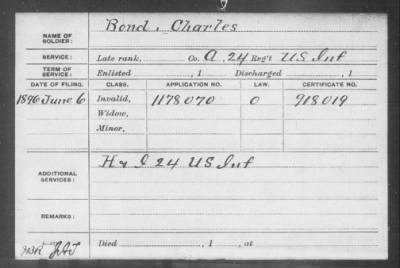 NAME OF SOLDIER: Bond, Charles
SERVICE: Late rank, Co. A, 24 Reg't US Inf
TERM OF SERVICE: Enlisted , 1 Discharged , 1
DATE OF FILING. CLASS. APPLICATION NO. LAW. CERTIFICATE NO.
1896 June 6 Invalid, 1178070 O 918019
Widow,
Minor,
ADDITIONAL SERVICES: H & I 24 US Inf
REMARKS:
Died , 1 , at